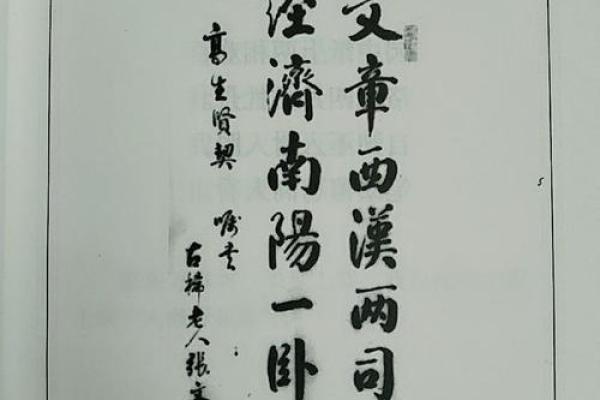 文章西漢两司
经濟南陽一卧
高生賢契 嘱书
古稀老人張文
5